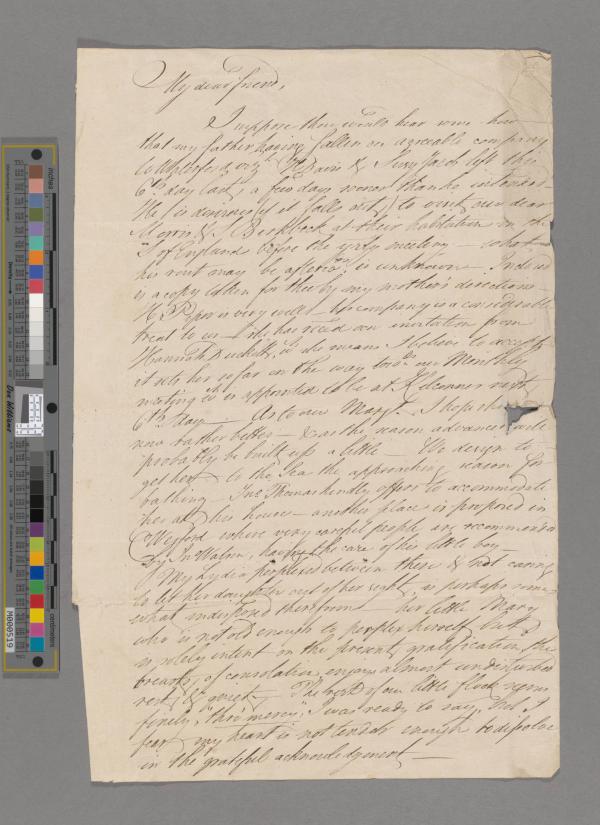 My dear friend,
I suppose thou would hear some how
that my father having fallen on agreeable company
to Waterford, left this
6th day last, a few days sooner than he intended
He is desirous (if it falls out) to visit our dear
Morris & S Birkbeck at their habitation in the
S of England before the yearly meeting — what
his rout may be afterwds is unknown. Inclosed
is a copy taken for thee by my mother's direction —
H Piper is very well — her company is a considerable
treat to us — she has recd an invitation from
Hannah Duckett, wch she means I believe to accept
it sets her so far on the way towds our Monthly
meeting wch is appointed to be at Kilconner next
6th day — As to our Mary! I hope she
now rather better — & as the season advances will
probably be built up a little — We design to
get her to the sea the approaching season for
bathing — Jno Thomas kindly offers to accommodate
her at his house — another place is proposed in
Wexford where very careful people are recommended
by Jn Watson, having the care of his little boy —
My Lydia perplexed between these & not caring
to let her daughter out of her sight, is perhaps some
what indisposed therefrom — her little Mary
who is not old enough to perplex herself but
is solely intent on the present gratification, the
breasts of consolation, enjoys almost undisturbed
rest & quiet — The rest of our little flock seems
finely, "thro' mercy," I was ready to say, but I
fear my heart is not tender enough to dissolve
in the grateful acknowledgement —
M000519
centimeters